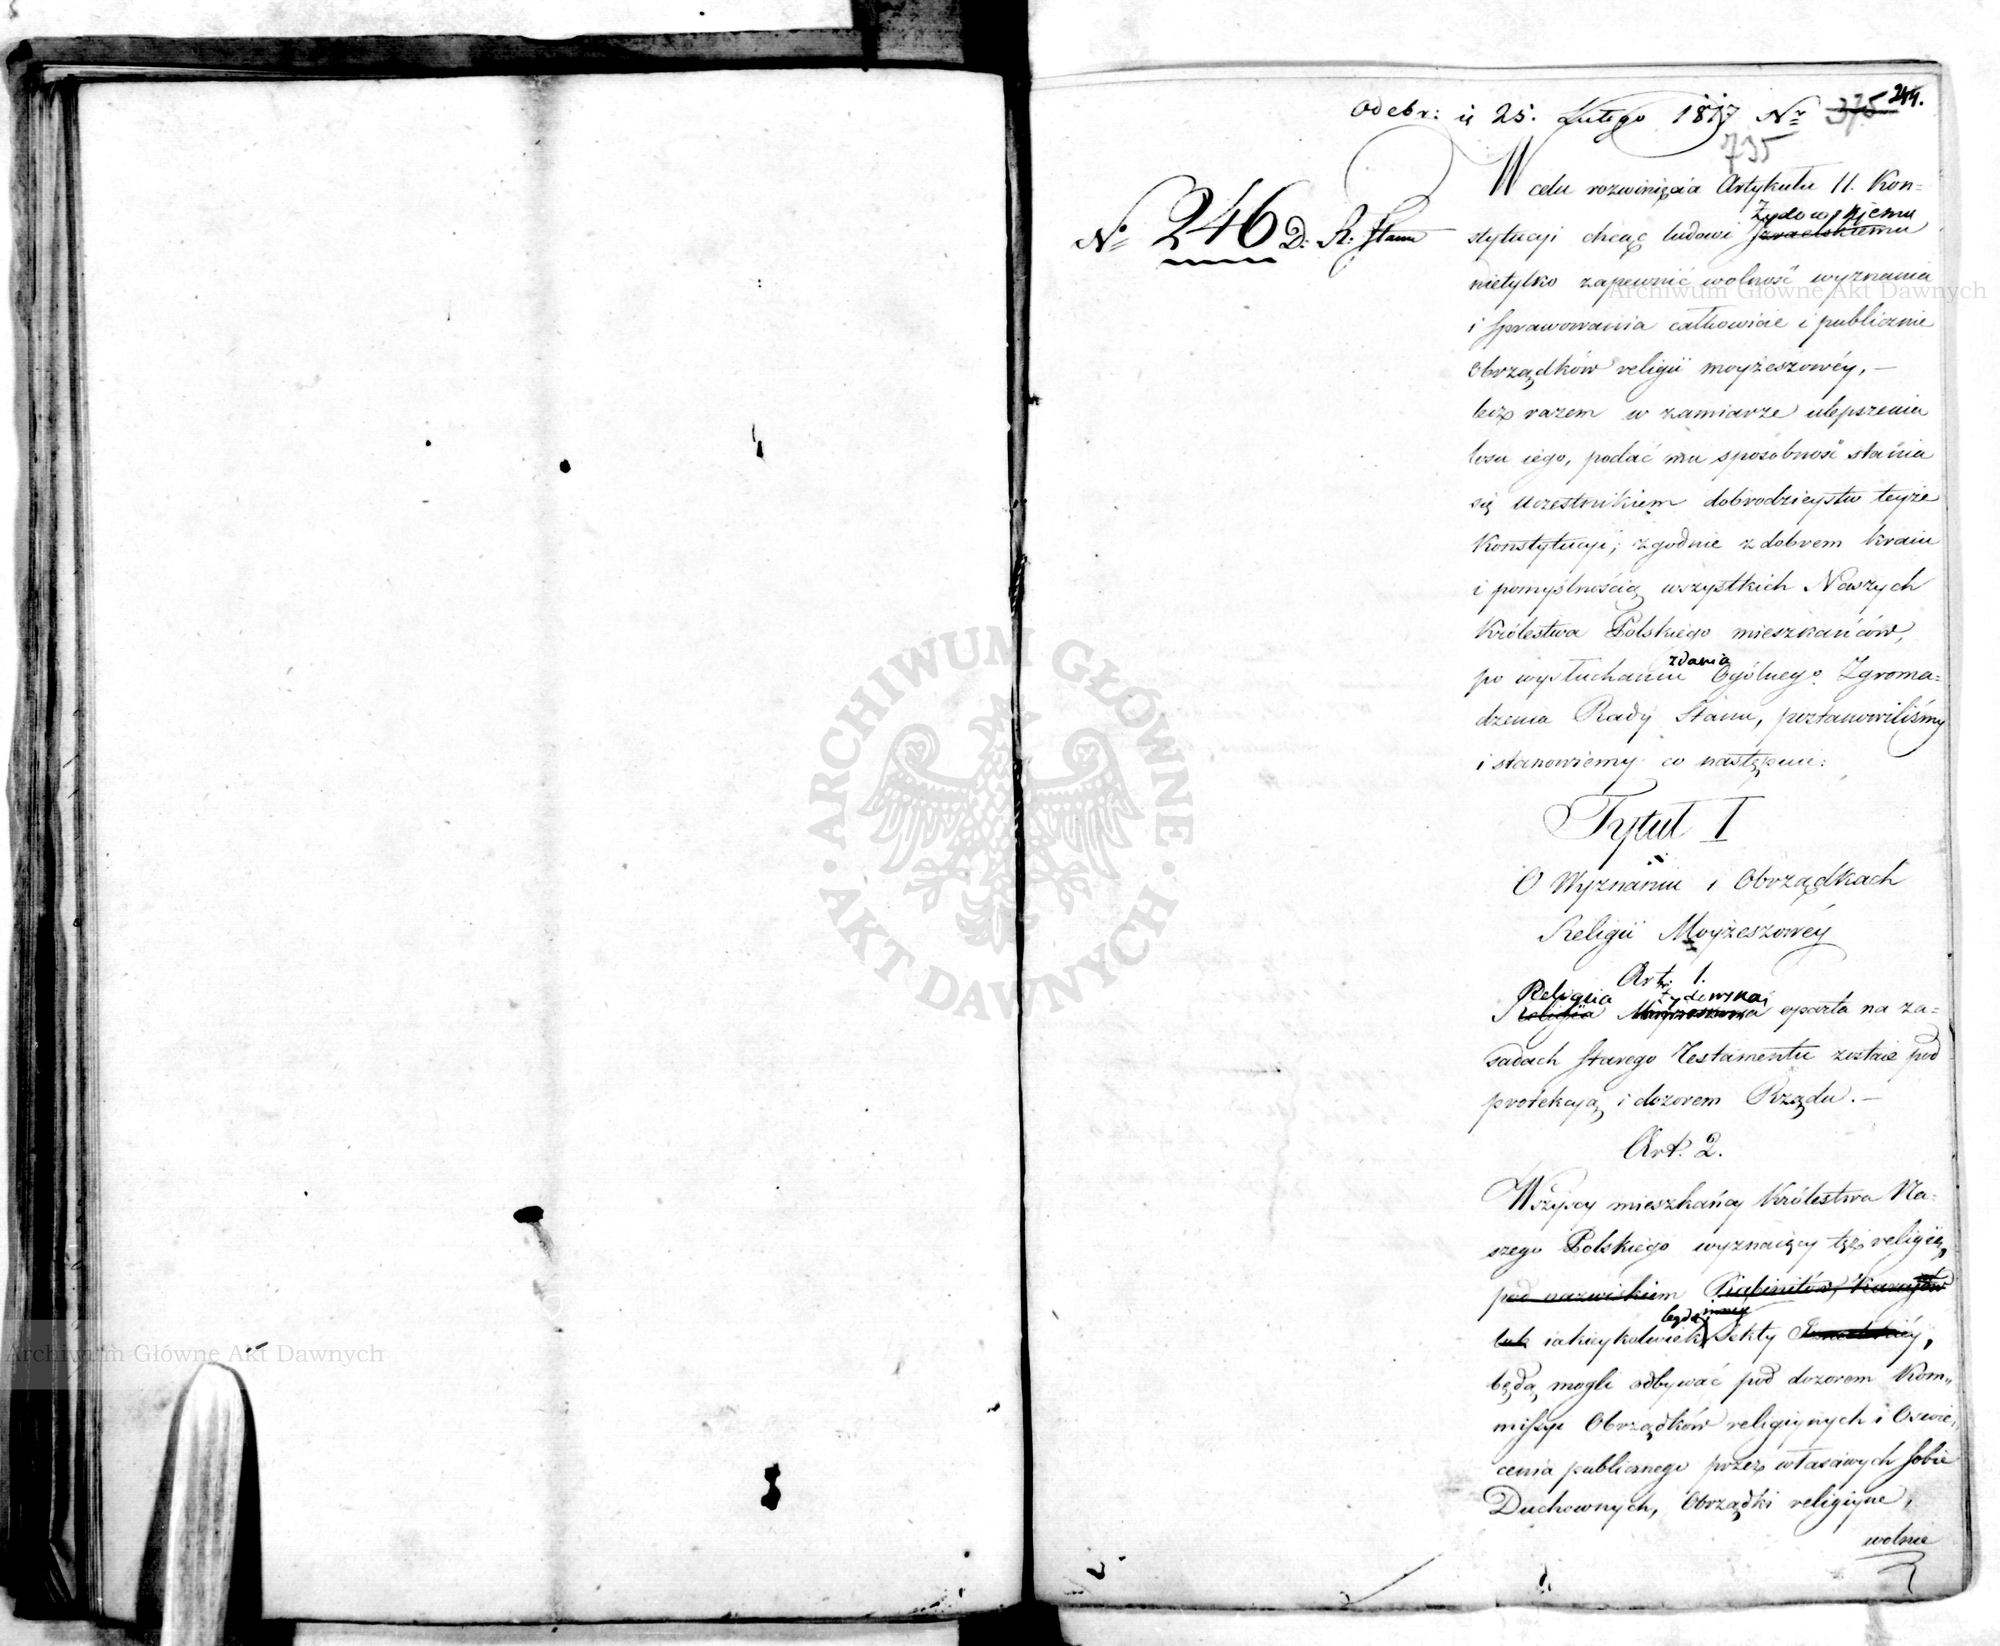 244.
Odebr: 25. Lutego 1817 Nr 375
735
No 246 D. R. Stanu
W celu rozwinięcia Artykułu 11. Kon=
Żydowskiemu
stytucyi chcąc ludowi Izraelskiemu
nietylko zapewnić wolność wyznania
i sprawowania całkowicie i publicznie
Obrządków religii moyżeszowéy, —
lecz razem w zamiarze ulepszenia
losu iego, podać mu sposobność stania
się Uczestnikiem dobrodzieystw teyże
Konstytucyi; zgodnie z dobrem kraiu
i pomyślnością wszystkich Naszych
Królestwa Polskiego mieszkańców,
zdania
po wysłuchaniu Ogólnego Zgroma=
dzenia Rady Stanu, postanowiliśmy
i stanowiemy co następuie:
Tytuł I
O Wyznaniu i Obrządkach
Religii Moyżeszowéy
Art. 1.
Religia żydowska
Religia Moyżeszowa oparta na za=
sadach Starego Testamentu zostaie pod
protekcyą i dozorem Rządu. —
Art. 2.
Wszyscy mieszkańcy Królestwa Na=
szego Polskiego wyznaiący tęż religię,
pod nazwiskiem Rabinitów, Karaitów
bądź inney
lub iakieykolwiek Sekty Izraelskiéy,
będą mogli odbywać pod dozorem Kom=
missyi Obrządków religiynych i Oswie=
cenia publicznego przez własciwych sobie
Duchownych, Obrządki religiyne,
wolnie
Archiwum Główne Akt Dawnych
ARCHIWUM GŁÓWNE AKT DAWNYCH
Archiwum Główne Akt Dawnych